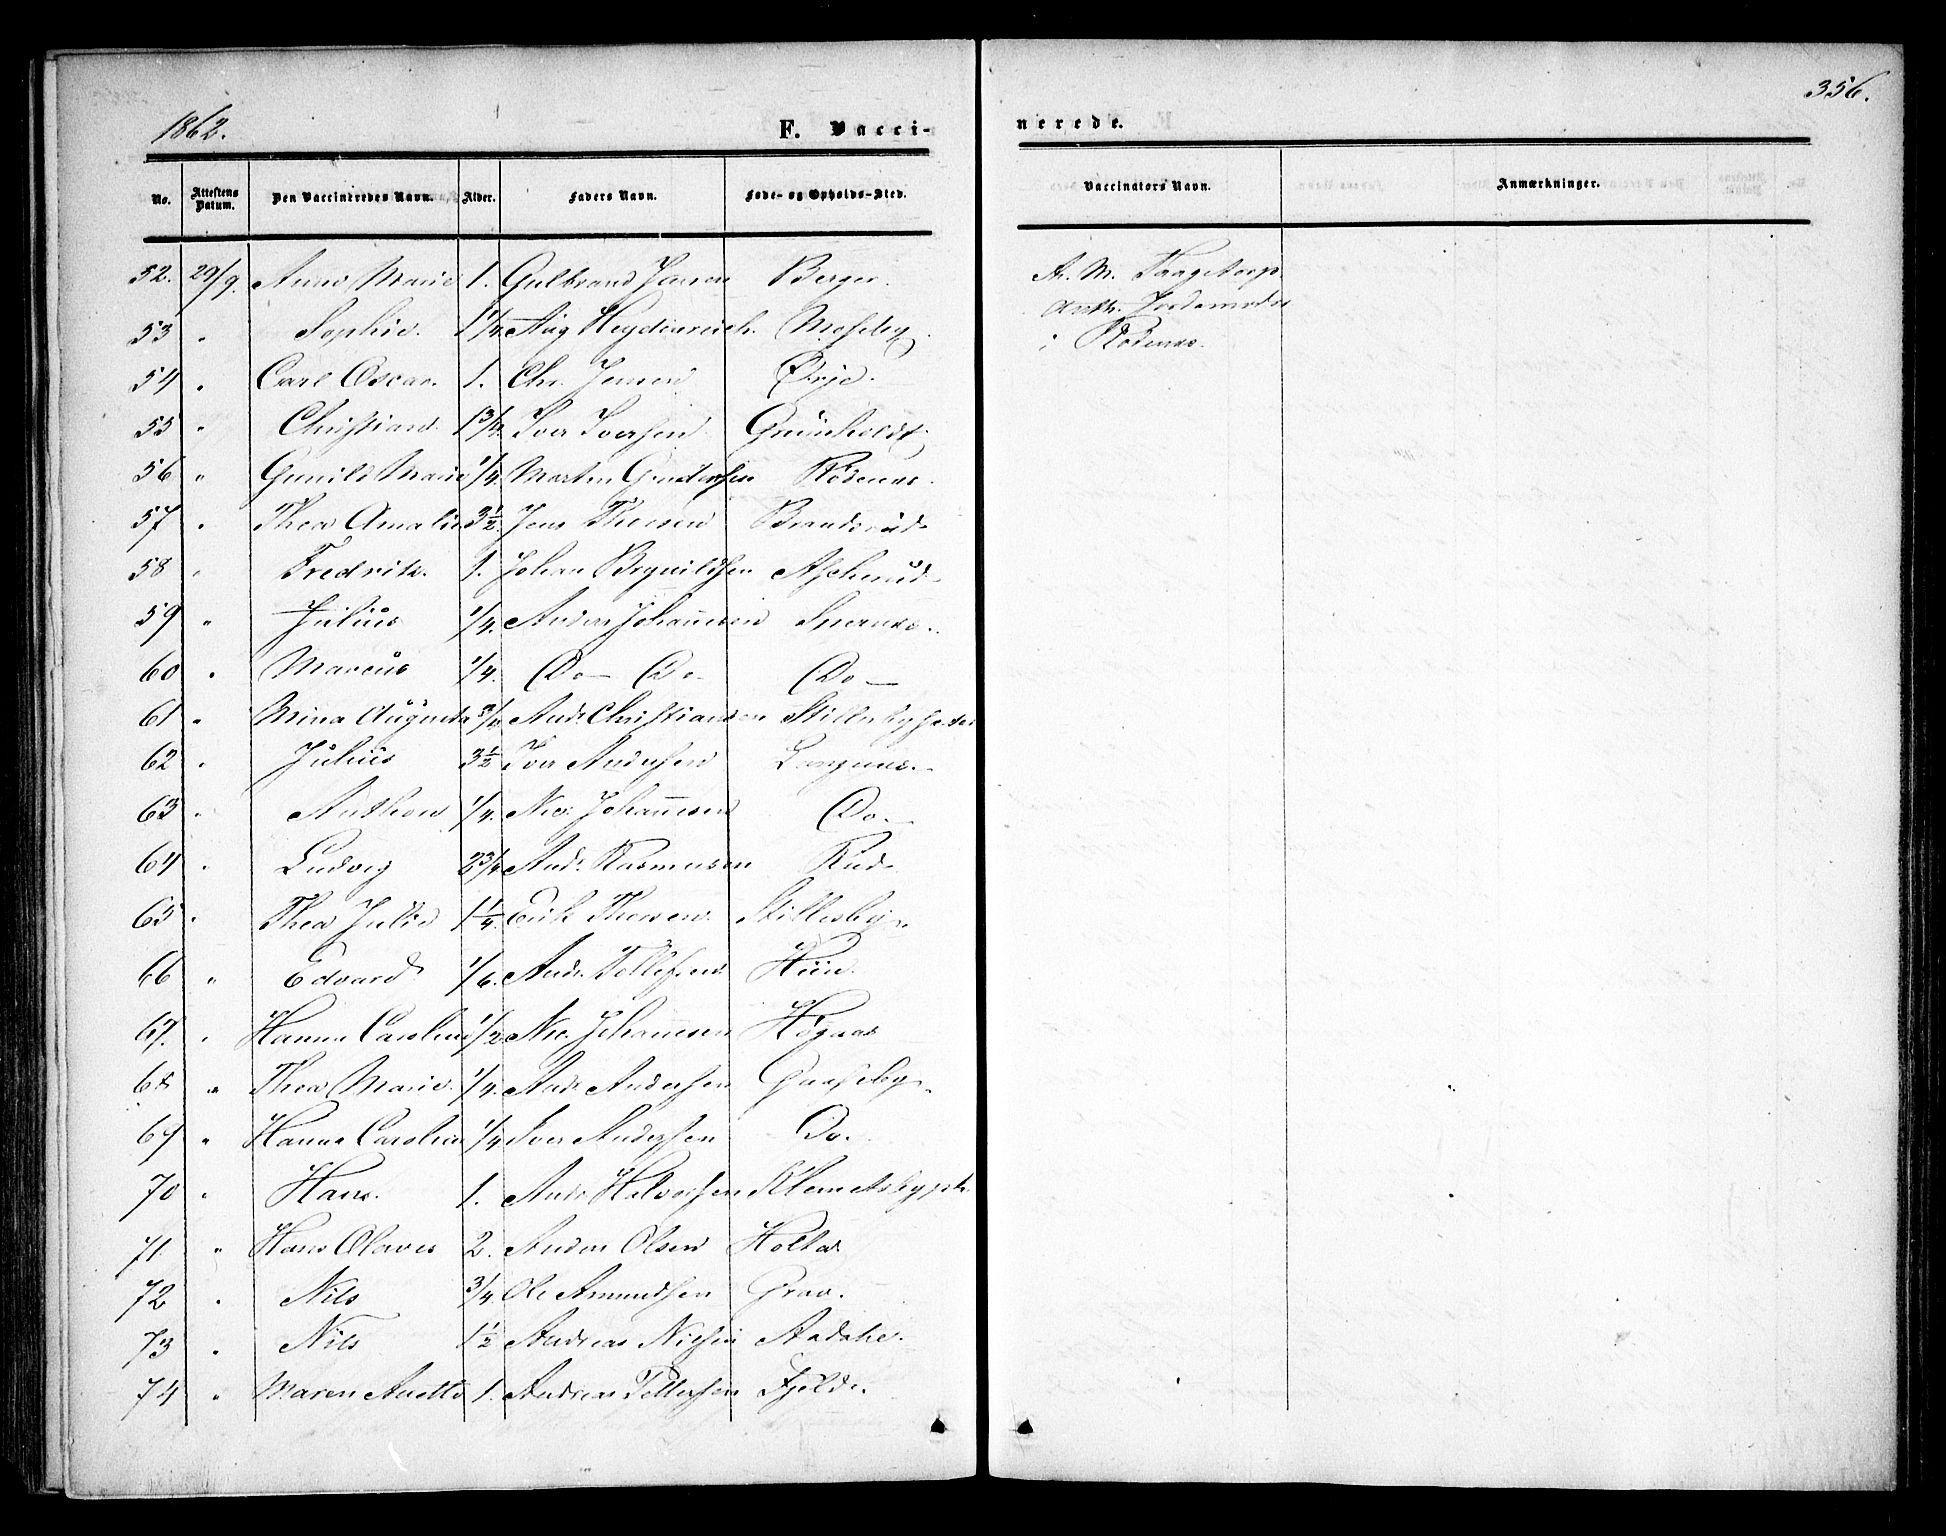 356.
1862.
F. Vacci-
nerede.
No. Attestens Datum. Den Vaccineredes Navn. Alder. Faders Navn. Føde- og Opholds-Sted. Vaccinators Navn. Anmærkninger.
52. 29/9. Anne Marie 1. Gulbrand Jensen Berger.
53 " Sophie. Aug Heydenreich. Moseby.
54 " Carl Oscar. 1. Chr. Jensen Ørje.
55 " Christian. 1 3/4 Iver Iversen Grünholdt.
56 " Gunild Marie 1/4 Martin Gundersen Rødenes.
57 " Thea Amalie 3 1/2 Jens Thoresen Brandsrud
58 " Fredrik. 1. Johan Brynildsen
59 " Julius 1/4. Anders Johannesen
60 " Marcus 1/4. Do Do Do
61 " Mina Augusta And. Christiansen
62 " Julius 3 1/2 Iver Andersen Langnes.
63 " Anthon 1/4. Nic. Johannesen Do.
64 " Ludvig 2 3/4 And. Rasmusen Rud.
65 " Thea Julie 1 1/4. Erik Thoresen. Stillesby.
66 " Edvard 1/6. And. Tellefsen Hiin.
67. " Hanna Caroline 1/2 Nic. Johannesen Høgnes
68 " Thea Marie. 1/4. And. Andersen Gaaseby.
69 " Hanna Caroline 1/4 Iver Andersen Do.
70 " Hans. 1. And. Halvorsen
71 " Hans Olaves 2. Anders Olsen Holter
72 " Nils 3/4. Ole Amundsen Grav.
73 " Nils 1 1/2 Andreas Nilsen
74 " Maren Anette 1. Andreas Fjeld.
A. M.
Jordemoder
i Rødenes.